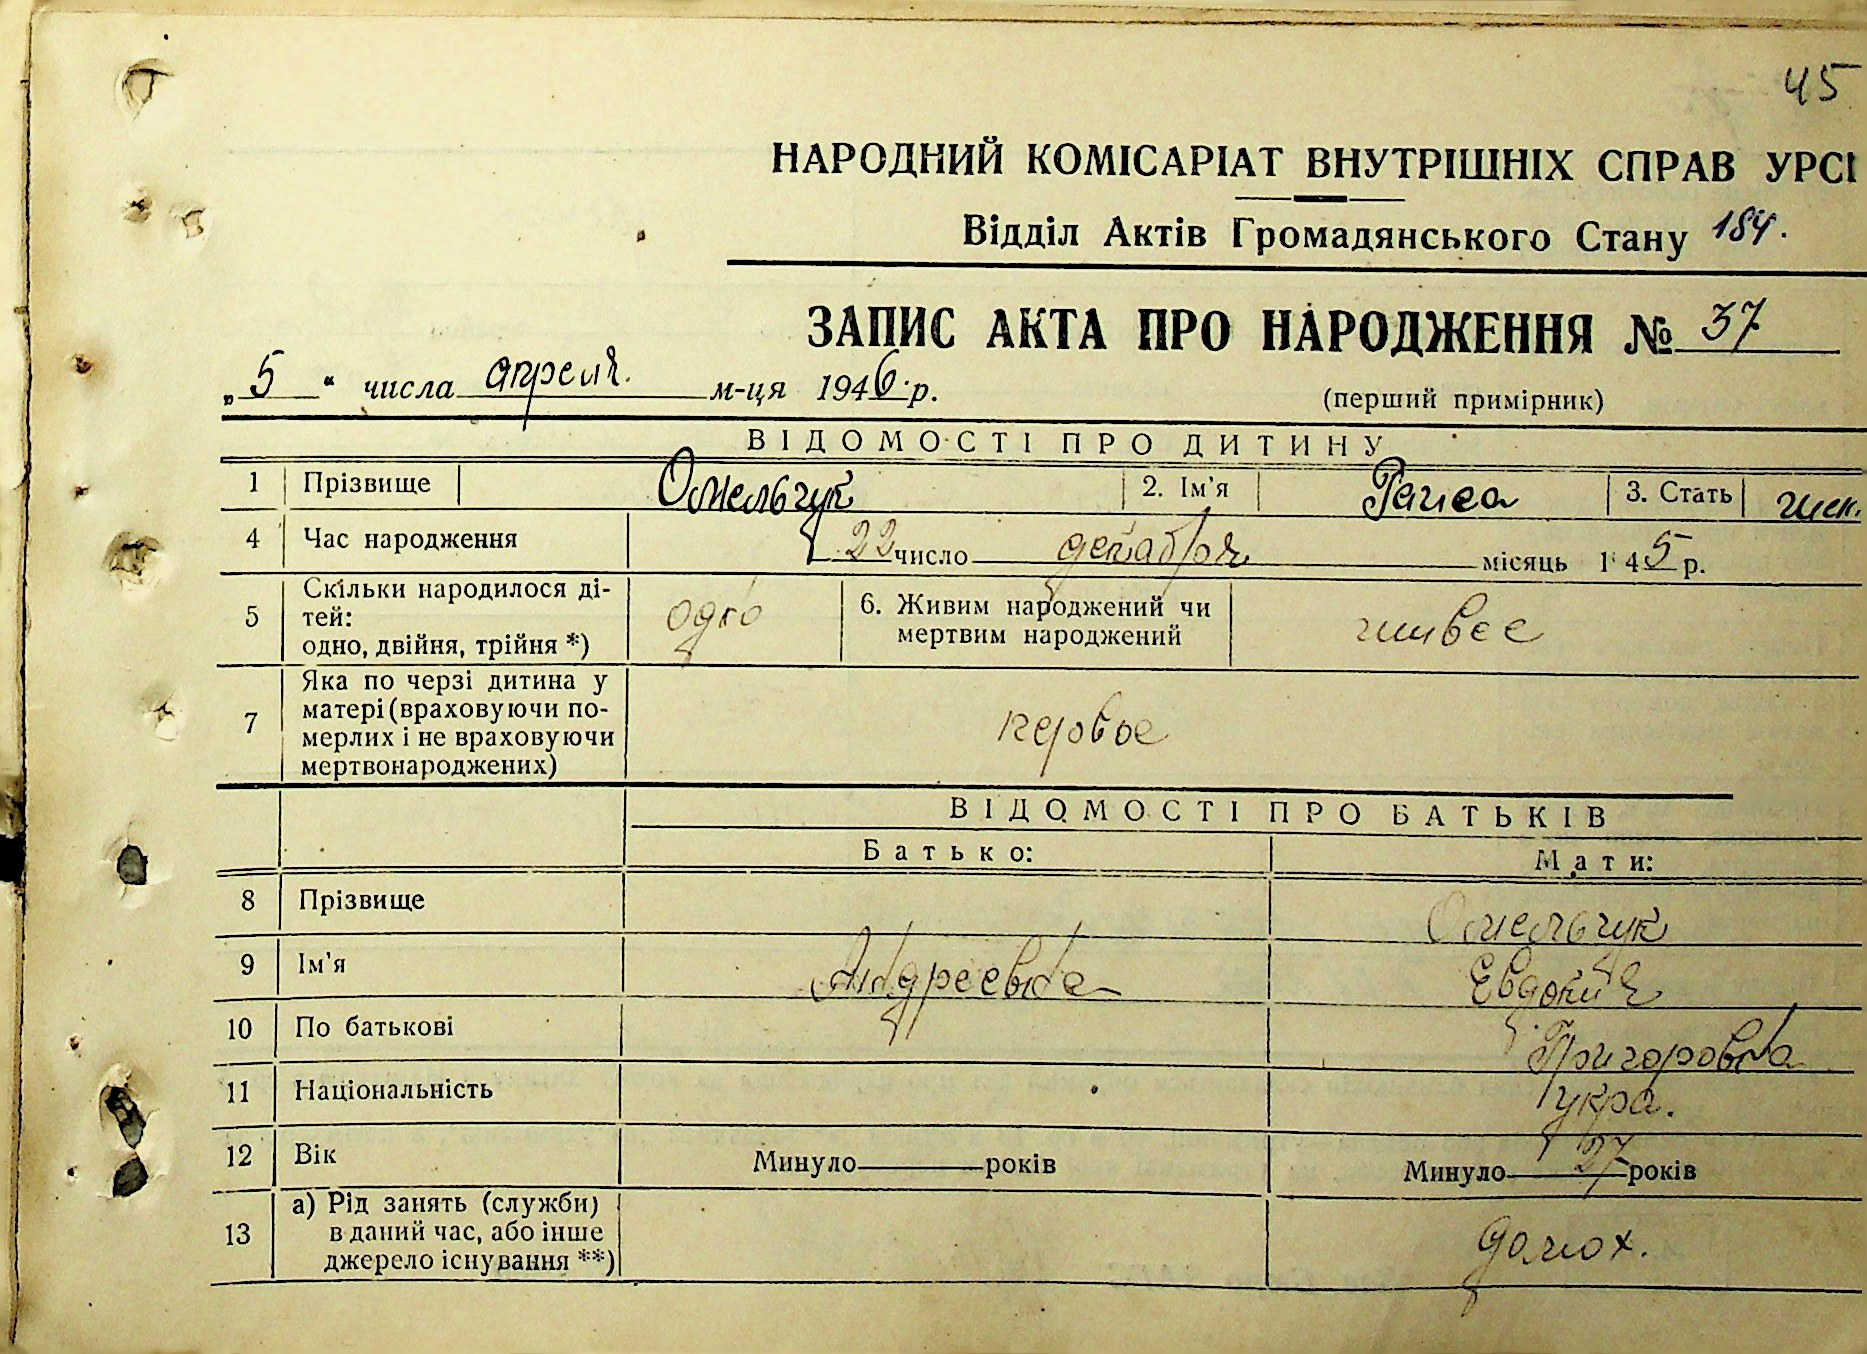 45
НАРОДНИЙ КОМІСАРІАТ ВНУТРІШНІХ СПРАВ УРСІ
Відділ Актів Громадянського Стану 184.
ЗАПИС АКТА ПРО НАРОДЖЕННЯ № 37
„5“ числа апреля. м-ця 1946 р.
(перший примірник)
ВІДОМОСТІ ПРО ДИТИНУ
1 Прізвище Омельчук 2. Ім'я Раиса 3. Стать жен.
4 Час народження 22 число декабря місяць 1 45 р.
5 Скільки народилося ді-
тей:
одно, двійня, трійня *) одно 6. Живим народжений чи
мертвим народжений живое
7 Яка по черзі дитина у
матері (враховуючи по-
мерлих і не враховуючи
мертвонароджених) первое
ВІДОМОСТІ ПРО БАТЬКІВ
Батько: Мати:
8 Прізвище Омельчук
9 Ім'я Андреевна Евдокия
10 По батькові Григоровна
11 Національність укра.
12 Вік Минуло років Минуло 27 років
13 а) Рід занять (служби)
в даний час, або інше
джерело існування **) домох.